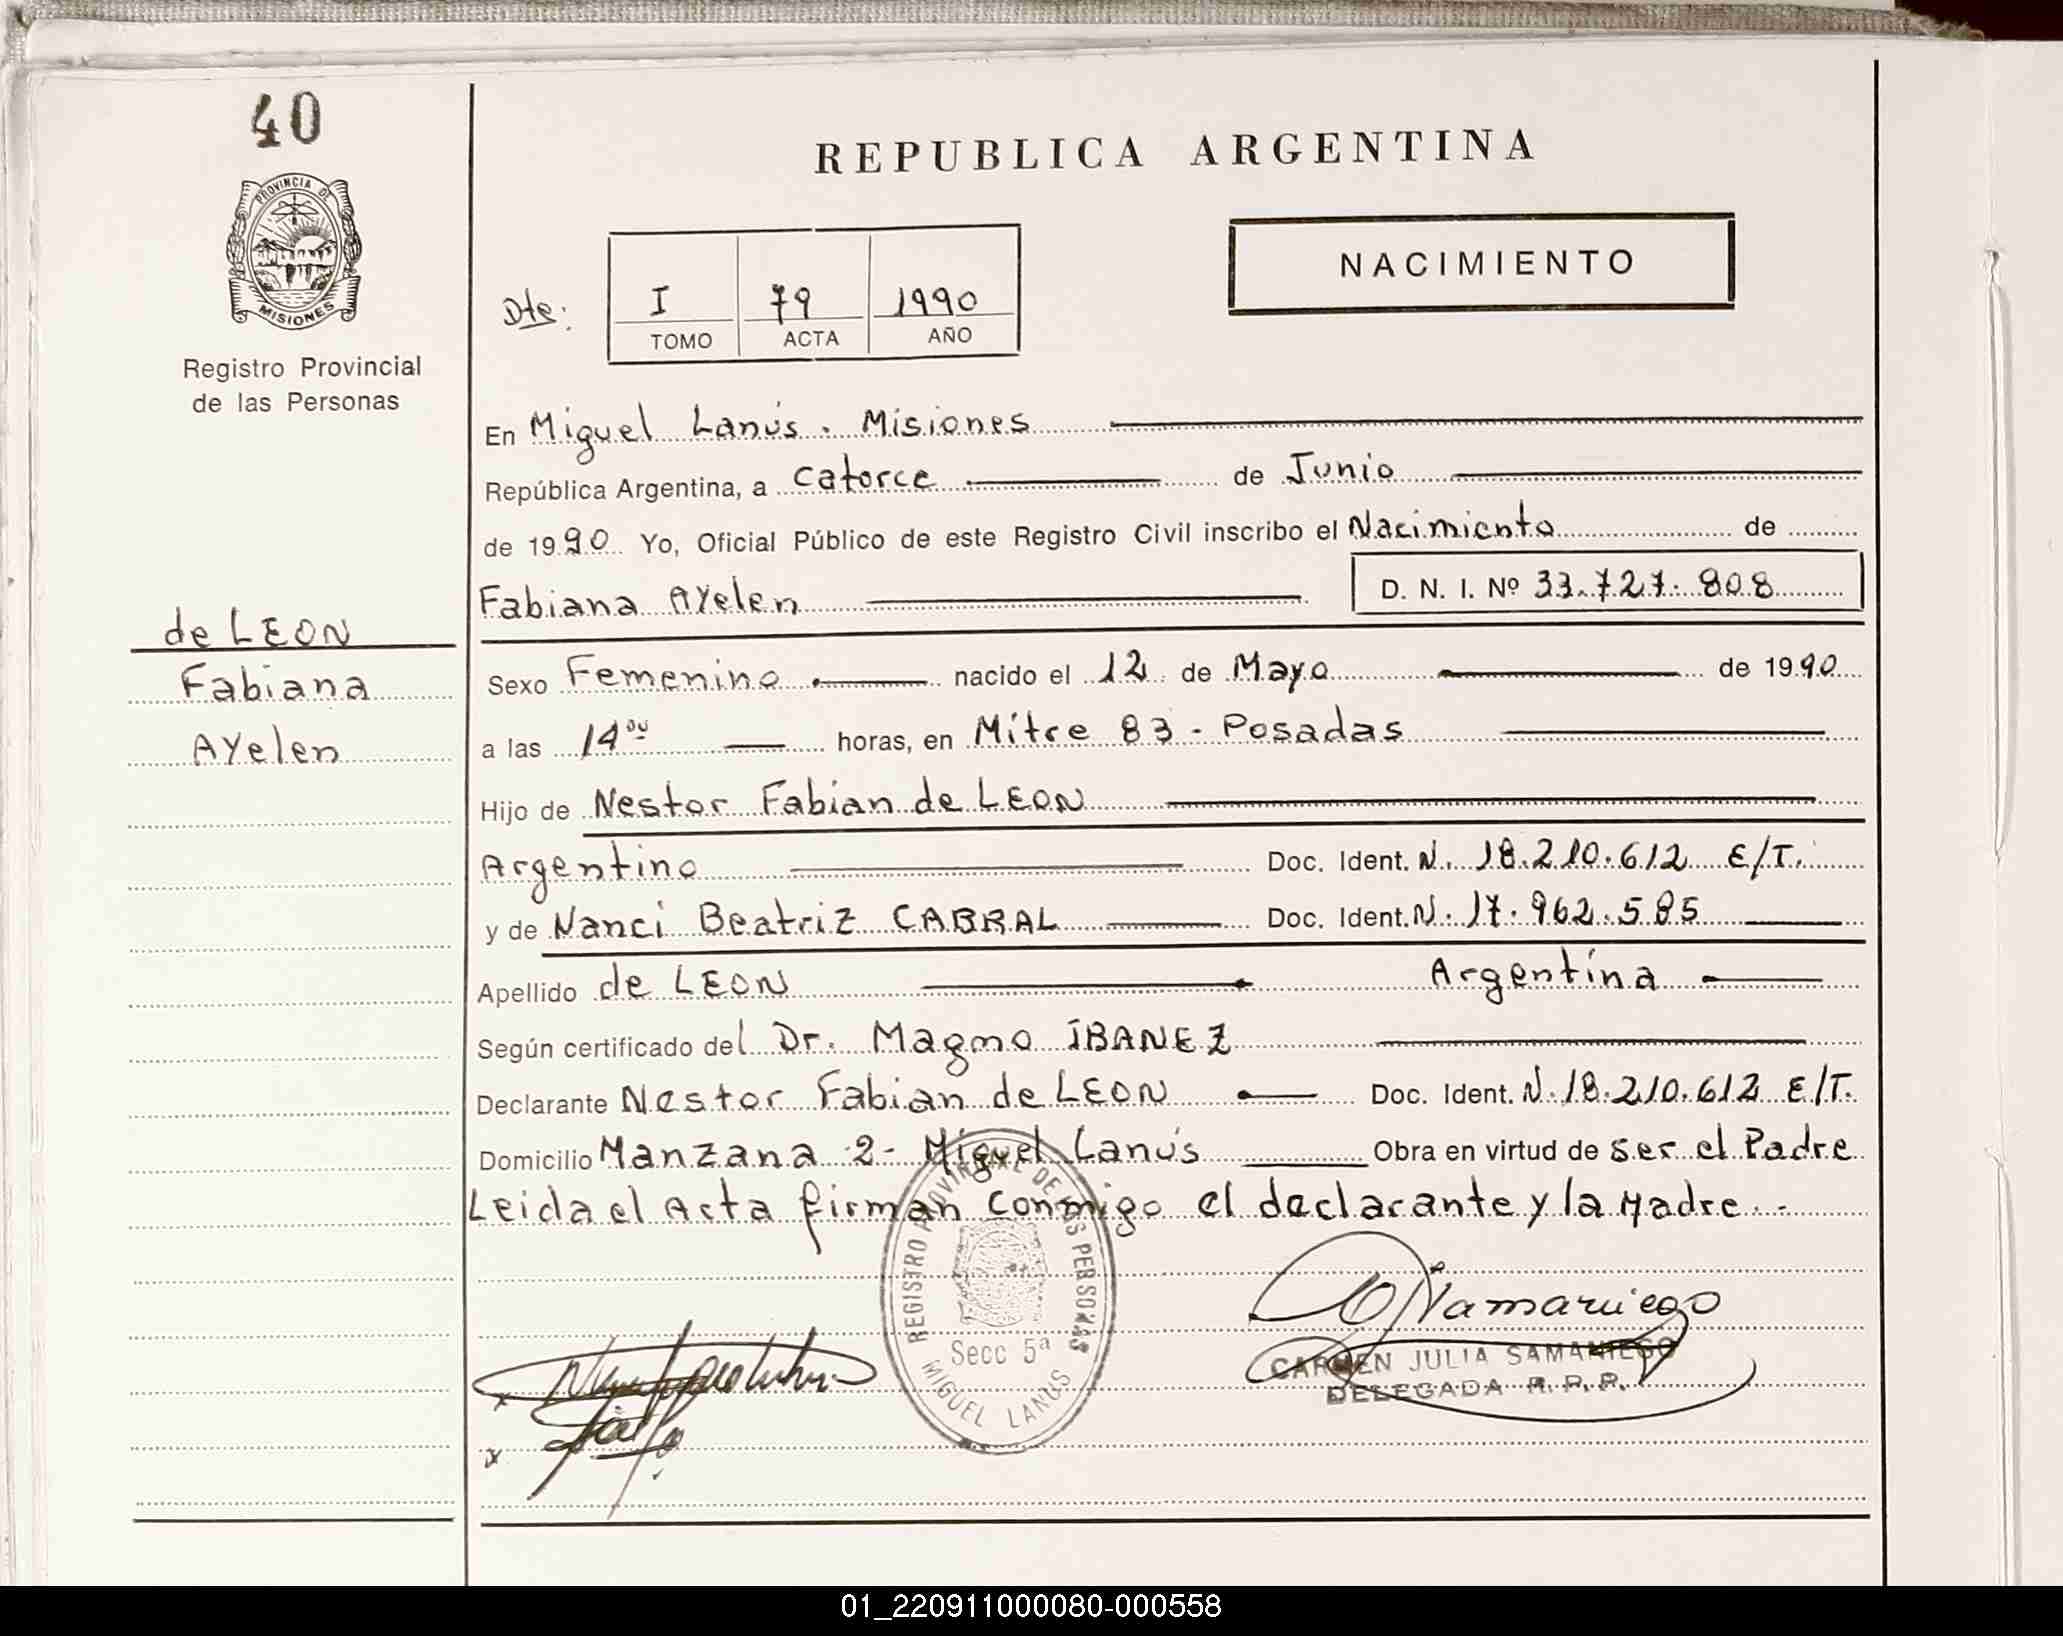 40
PROVINCIA DE
MISIONES
Registro Provincial
de las Personas
de LEON
Fabiana
AYelen
REPUBLICA ARGENTINA
NACIMIENTO
Dte: I 79 1990
TOMO ACTA AÑO
En Miguel Lanús. Misiones
República Argentina, a catorce de Junio
de 1990 Yo, Oficial Público de este Registro Civil inscribo el Nacimiento de
Fabiana AYelen D. N. I. Nº 33.727.808
Sexo Femenino nacido el 12 de Mayo de 1990
a las 14 horas, en Mitre 83 - Posadas
Hijo de Nestor Fabian de LEON
Argentino Doc. Ident. N. 18.210.612 E/T.
y de Nanci Beatriz CABRAL Doc. Ident. N. 17.962.585
Apellido de LEON Argentina
Según certificado del Dr. Magno IBANEZ
Declarante Nestor Fabian de LEON Doc. Ident. N. 18.210.612 E/T.
Domicilio Manzana 2 - Miguel Lanús Obra en virtud de ser el Padre
Leida el Acta firman conmigo el declarante y la Madre.-
REGISTRO PROVINCIAL DE LAS PERSONAS
Secc 5ª
MIGUEL LANUS
CARMEN JULIA SAMANIEGO
DELEGADA R. P. P.
01_220911000080-000558